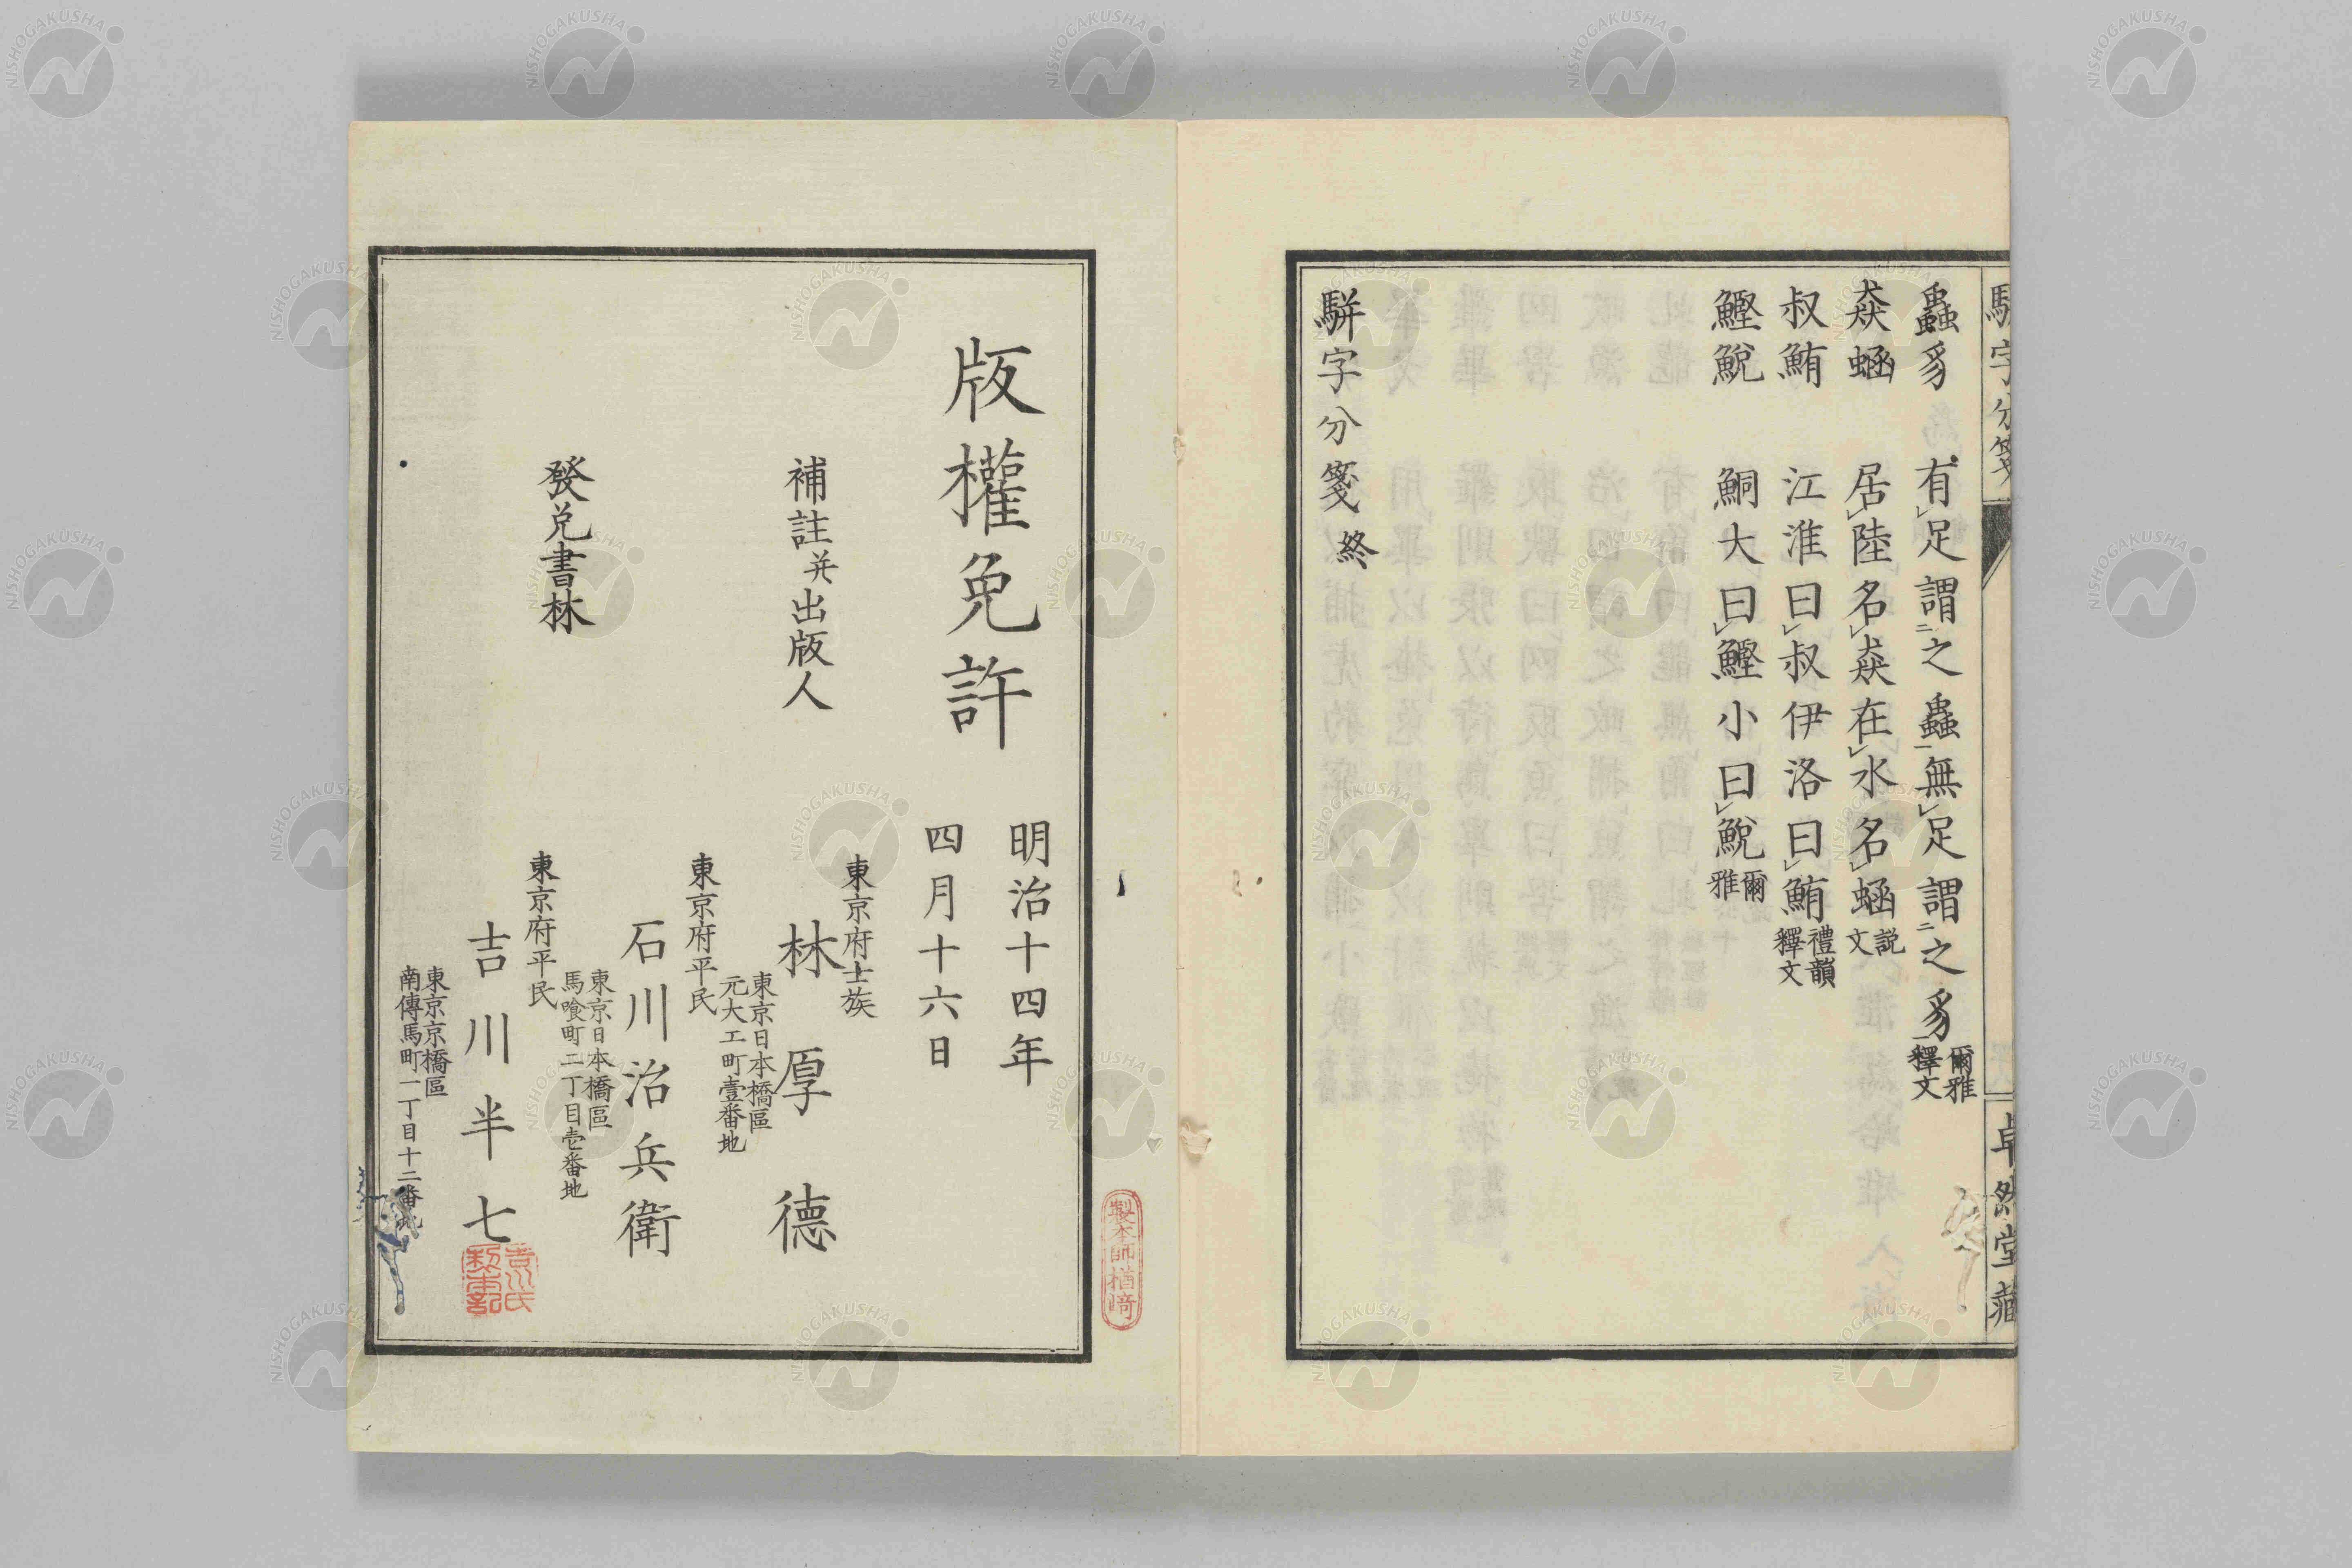 蟲豸 有足謂之蟲無足謂之豸 爾雅釋文
猋蜬 居陸名猋在水名蜬 説文
叔鮪 江淮曰叔伊洛曰鮪 禮韻釋文
鰹鮵 鮦大曰鰹小曰鮵 爾雅
駢字分箋 終
駢字分箋
卓然堂藏
版權免許
明治十四年
四月十六日
補註并出版人
東京府士族
林厚德
東京日本橋區
元大工町壹番地
發兌書林
東京府平民
石川治兵衛
東京日本橋區
馬喰町二丁目壱番地
東京府平民
吉川半七
東京京橋區
南傳馬町一丁目十二番地
製本師楢﨑
NISHOGAKUSHA